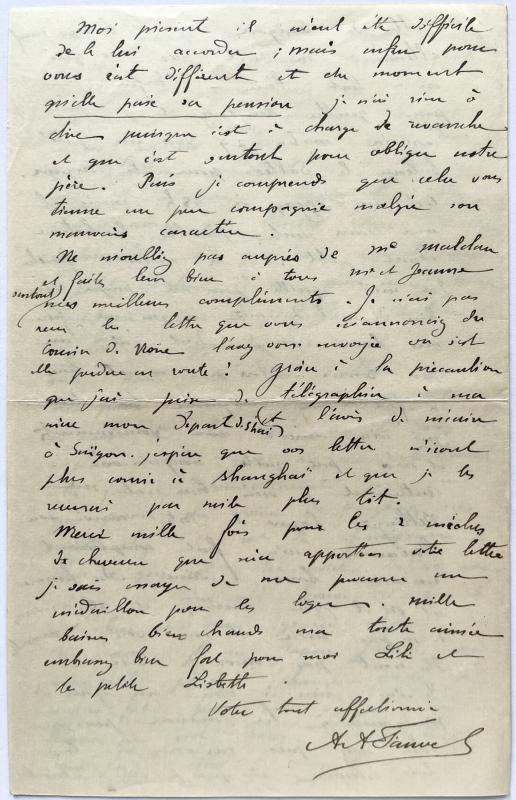 Moi présent il m'eut été difficile
de le lui accorder ; mais enfin pour
vous c'est différent et du moment
qu'elle paie sa pension je n'ai rien à
dire puisque c'est à charge de revanche
et que c'est surtout pour obliger notre
père. Puis je comprends que cela vous
tienne un peu compagnie malgré son
mauvais caractère.
Ne m'oubliez pas auprès de Me
et faites leur bien à tous et Jeanne
surtout mes meilleurs compliments. Je n'ai pas
reçu la lettre que vous m'annonciez du
Cousin de l'avez vous envoyée ou est
elle perdue en route ! Grâce à la précaution
que j'ai prise de télégraphier à ma
mère mon départ de Shaï (et l'avis de m'écrire
à Saïgon. j'espère que vos lettres n'iront
plus comme à Shanghaï et que je les
recevrai par suite plus tôt.
Merci mille fois pour les 2 mèches
de cheveux que m'a apportées votre lettre
je vais essayer de me procurer un
médaillon pour les loger. Mille
baisers bien chauds ma toute aimée
embrassez bien fort pour moi Lili et
la petite Lisbeth.
Votre tout affectionné
A A Fauvel